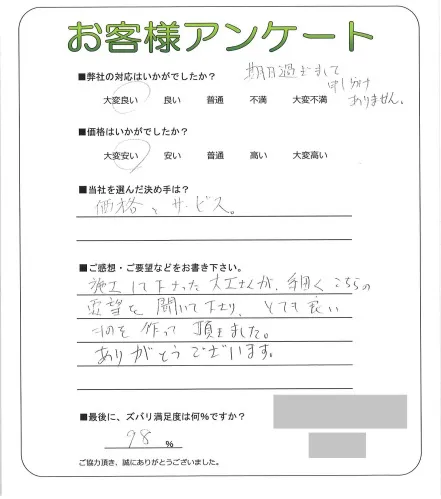 お客様アンケート
■弊社の対応はいかがでしたか？
期日過ぎまして
申し訳
ありません。
大変良い 良い 普通 不満 大変不満
■価格はいかがでしたか？
大変安い 安い 普通 高い 大変高い
■当社を選んだ決め手は？
価格と サービス。
■ご感想・ご要望などをお書き下さい。
施工して下さった大工さんが、手早くこちらの
要望を聞いて下さり、とても良い
物を作って頂きました。
ありがとうございます。
■最後に、ズバリ満足度は何％ですか？
98 %
ご協力頂き、誠にありがとうございました。